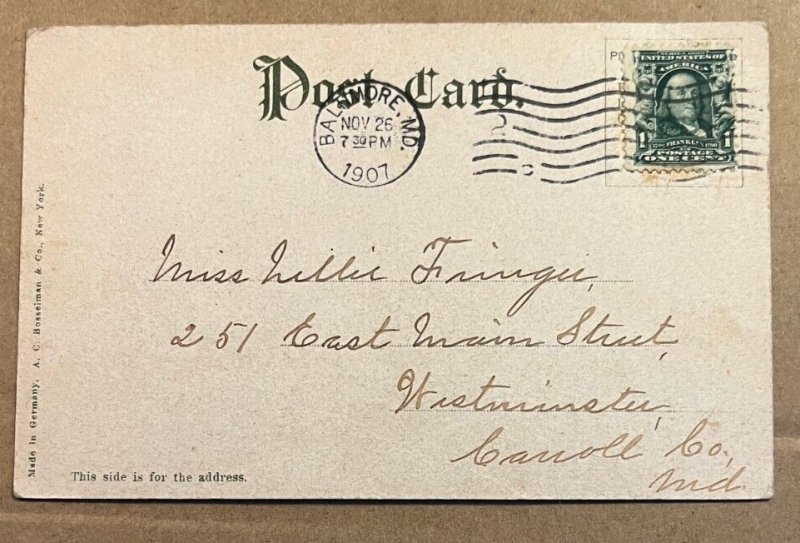 Post Card.
BALTIMORE, MD.
NOV 26
7 30 PM
1907
SERIES 1902
UNITED STATES OF
AMERICA
1 1790 FRANKLIN 1790 1
POSTAGE
ONE CENT
Miss Nellie Fringer,
251 East Main Street,
Westminster,
Carroll Co.,
Md.
This side is for the address.
Made in Germany. A. C. Bosselman & Co., New York.